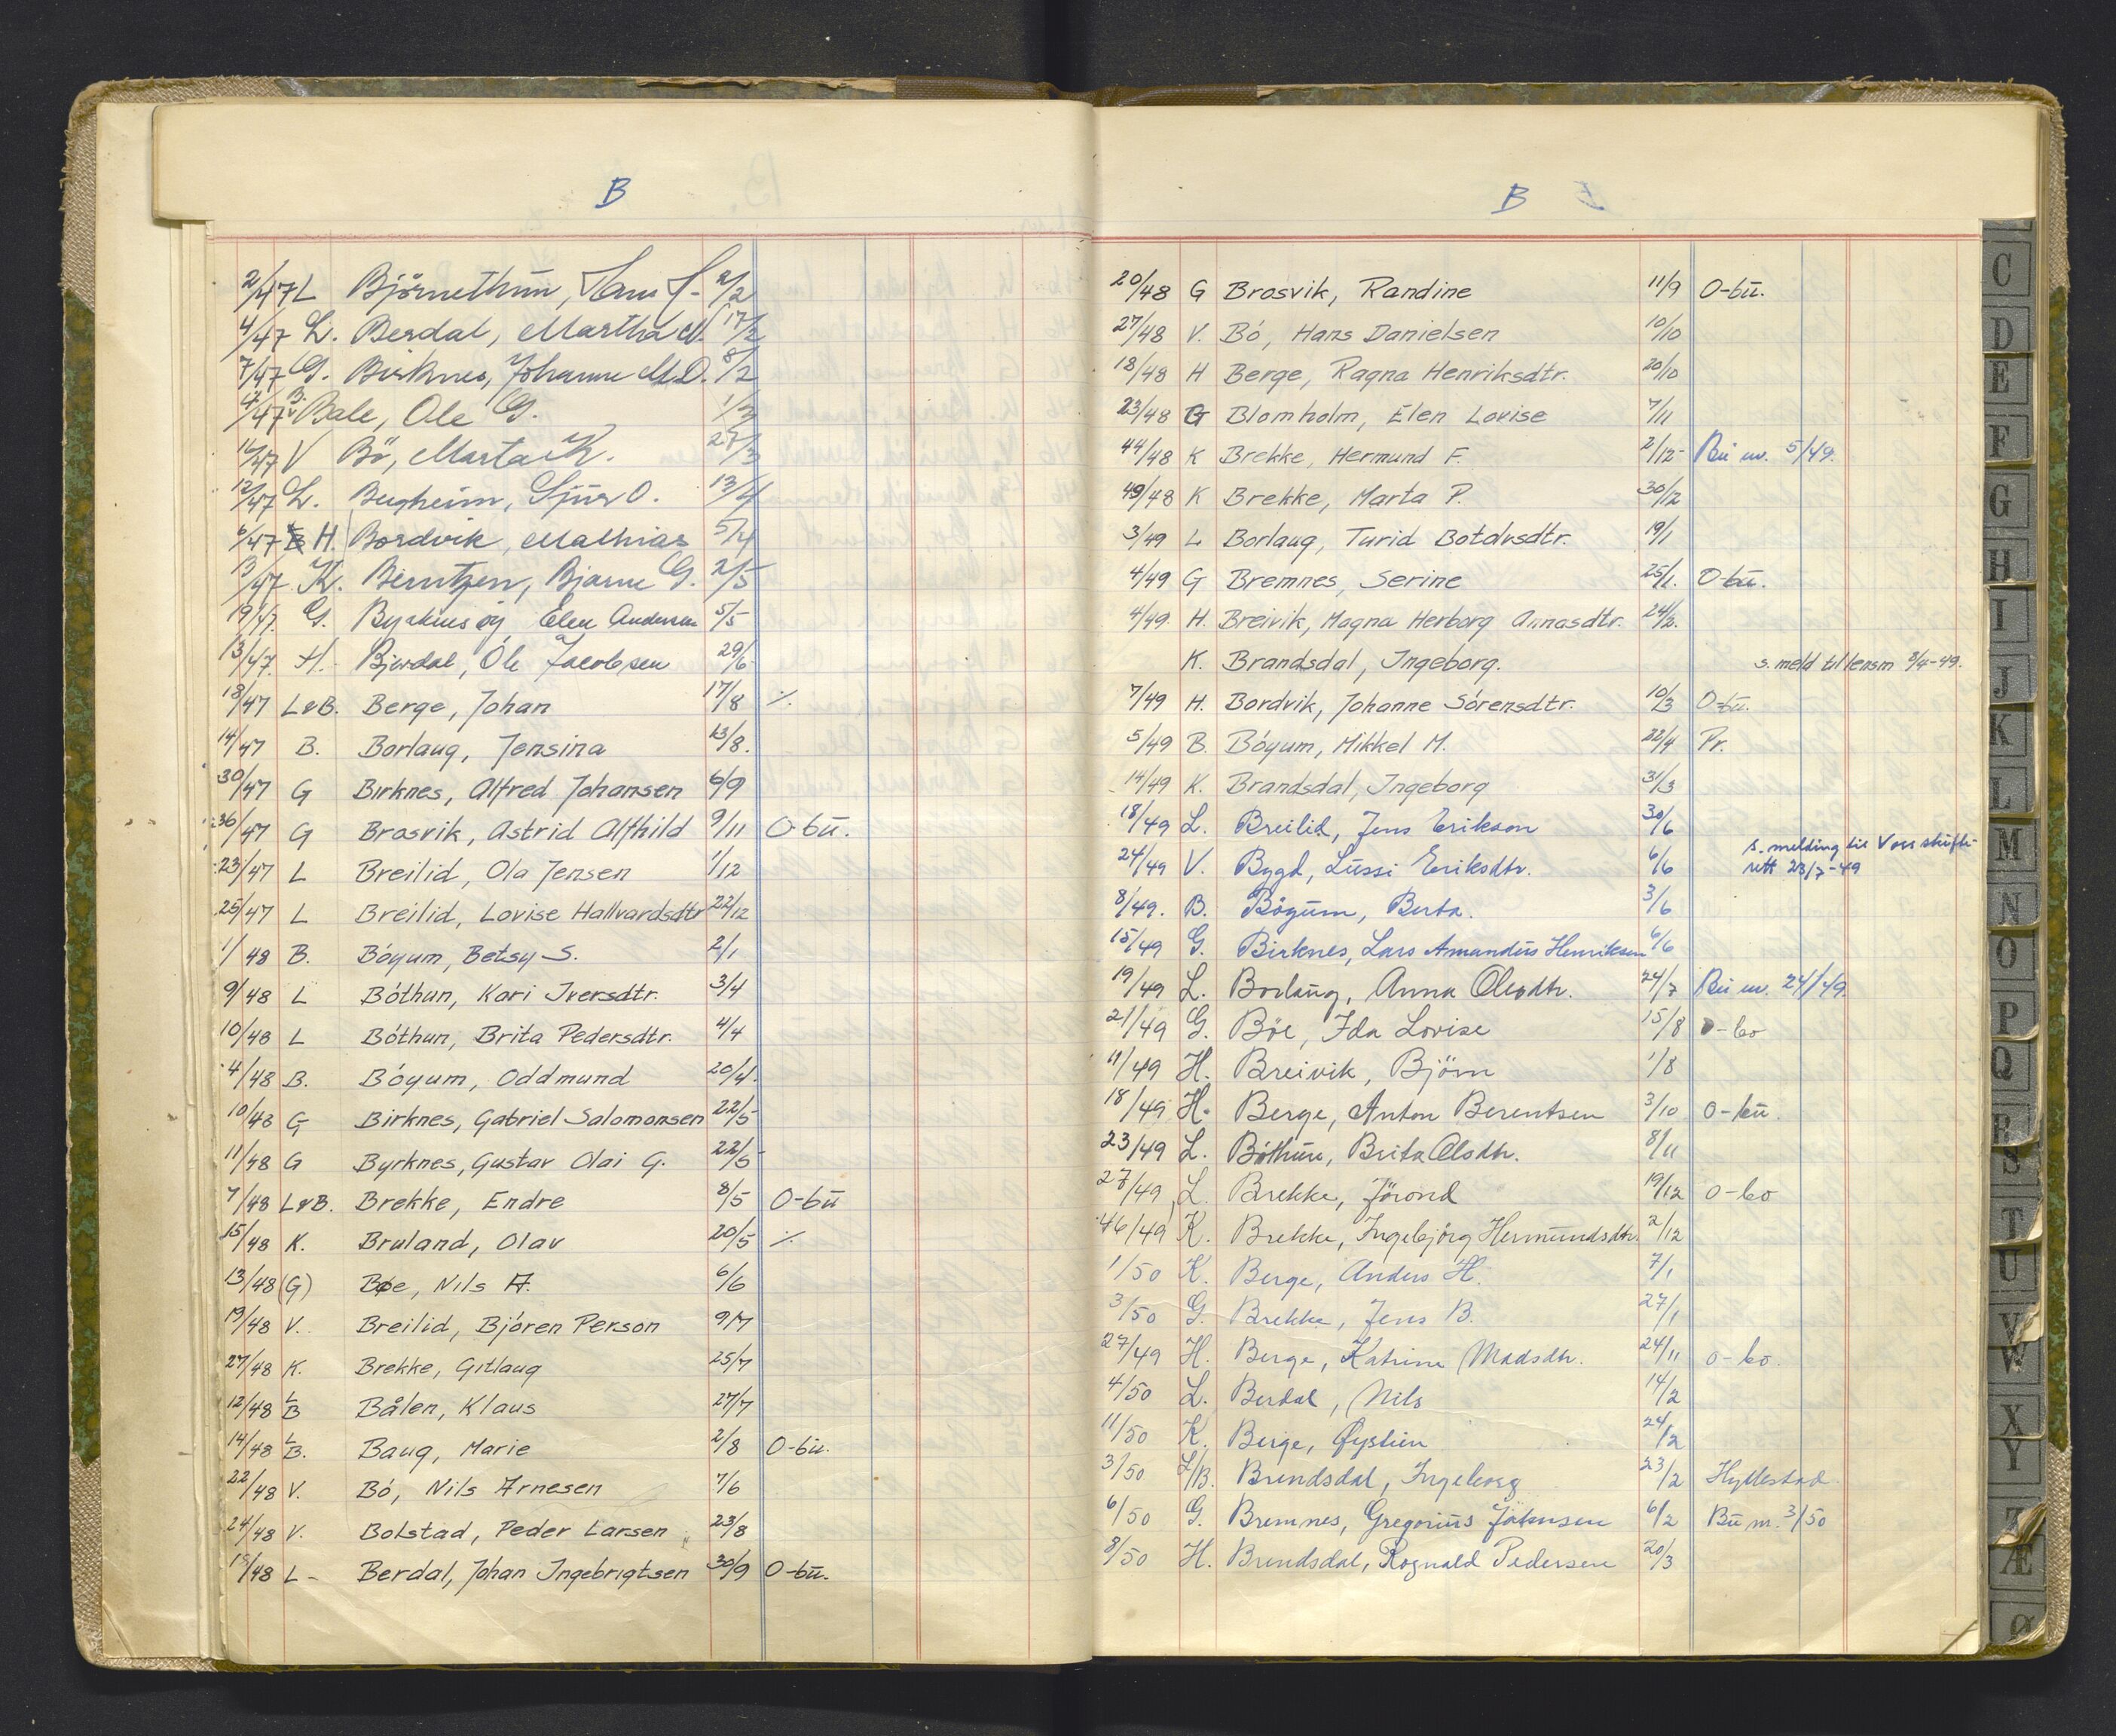 B
2/47 L Björnethun, Hans J. 2/2
4/47 L. Berdal, Martha M. 17/2
7/47 G. Birknes, Johanne M.D. 8/2
4/47 B. Bale, Ole G. 1/3
16/47 V Bö, Marta K. 27/3
12/47 L. Bergheim, Sjur O. 13/4
6/47 H. Bordvik, Mathias 5/4
13/47 K. Berntzen, Bjarne G. 2/5
19/47 G. Byrknesöy Elen Andersen 5/5
13/47 H. Bjordal, Ole Jacobsen 29/6
18/47 LvB. Berge, Johan 17/8 ./.
14/47 B. Borlaug, Jensina 13/8.
30/47 G Birknes, Alfred Johansen 6/9
36/47 G Brosvik, Astrid Alfhild 9/11 O-bu.
23/47 L Breilid, Ola Jensen 1/12
25/47 L Breilid, Lovise Hallvardsdtr 22/12
1/48 B. Bóyum, Betsy S. 2/1
9/48 L Bóthun, Kari Iversdtr. 3/4
10/48 L Bóthun, Brita Pedersdtr. 4/4
4/48 B. Bóyum, Oddmund 20/4.
10/48 G Birknes, Gabriel Salomonsen 22/5
11/48 G Byrknes, Gustav Olai G. 22/5
7/48 LvB. Brekke, Endre 8/5 O-bu
15/48 K. Bruland, Olav 20/5 ./.
13/48 (G) Bøe, Nils A. 6/6
19/48 V. Breilid, Bjóren Person 9/7
27/48 K. Brekke, Gitlaug 25/7
12/48 L B Bålen, Klaus 27/7
14/48 L B. Baug, Marie 2/8 O-bu.
22/48 V. Bó, Nils Arnesen 7/6
24/48 V. Bolstad, Peder Larsen 23/8
15/48 L- Berdal, Johan Ingebrigtsen 30/9 O-bu.
B
20/48 G Brosvik, Randine 11/9 O-bu.
27/48 V. Bó, Hans Danielsen 10/10
18/48 H Berge, Ragna Henriksdtr. 20/10
23/48 G Blomholm, Elen Lovise 7/11
44/48 K Brekke, Hermund F. 2/12 Bu nr. 5/49.
49/48 K Brekke, Marta P. 30/12
3/49 L Borlaug, Turid Botolvsdtr. 19/1
4/49 G Bremnes, Serine 25/1. O-bu.
4/49. H. Breivik, Magna Herborg Annasdtr. 24/2.
K. Brandsdal, Ingeborg. s. meld til lensm 8/4-49.
7/49 H. Bordvik, Johanne Sórensdtr. 10/3 O-bu.
5/49 B. Bóyum, Mikkel M. 22/4 Pr.
14/49 K. Brandsdal, Ingeborg 31/3
18/49 L. Breilid, Jens Erikson 30/6
24/49 V. Bygd, Lussi Eriksdtr. 6/6 s. melding til Voss skifte-
rett 23/7-49
8/49. B. Böyum, Berta. 3/6
15/49 G. Birknes, Lars Amandus Henriksen 6/6
19/49 L. Borlaug, Anna Olesdtr. 24/7 Bu nr. 24/49
21/49 G. Böe, Ida Lovise 15/8 O-bo
11/49 H. Breivik, Björn 1/8
18/49 H. Berge, Anton Berentsen 3/10 O-bu.
23/49 L. Böthun, Brita Olsdtr. 8/11
27/49 L. Brekke, Jörond 19/12 O-bo
46/49 K. Brekke, Ingebjörg Hermundsdtr. 2/12
1/50 K. Berge, Anders H. 7/1
3/50 G. Brekke, Jens B. 27/1
27/49 H. Berge, Katrine Madsdtr. 24/11 O-bo.
4/50 L. Berdal, Nils 14/2
11/50 K. Berge, Øystein 24/2
3/50 L/B. Brendsdal, Ingeborg 23/2 Hyllestad
6/50 G. Bremnes, Gregorius Johnsen 6/2 Bu nr. 3/50
8/50 H. Brendsdal, Rognald Pedersen 20/3
C
D
E
F
G
H
I
J
K
L
M
N
O
P
Q
R
S
T
U
V
W
X
Y
Z
Æ
Ø